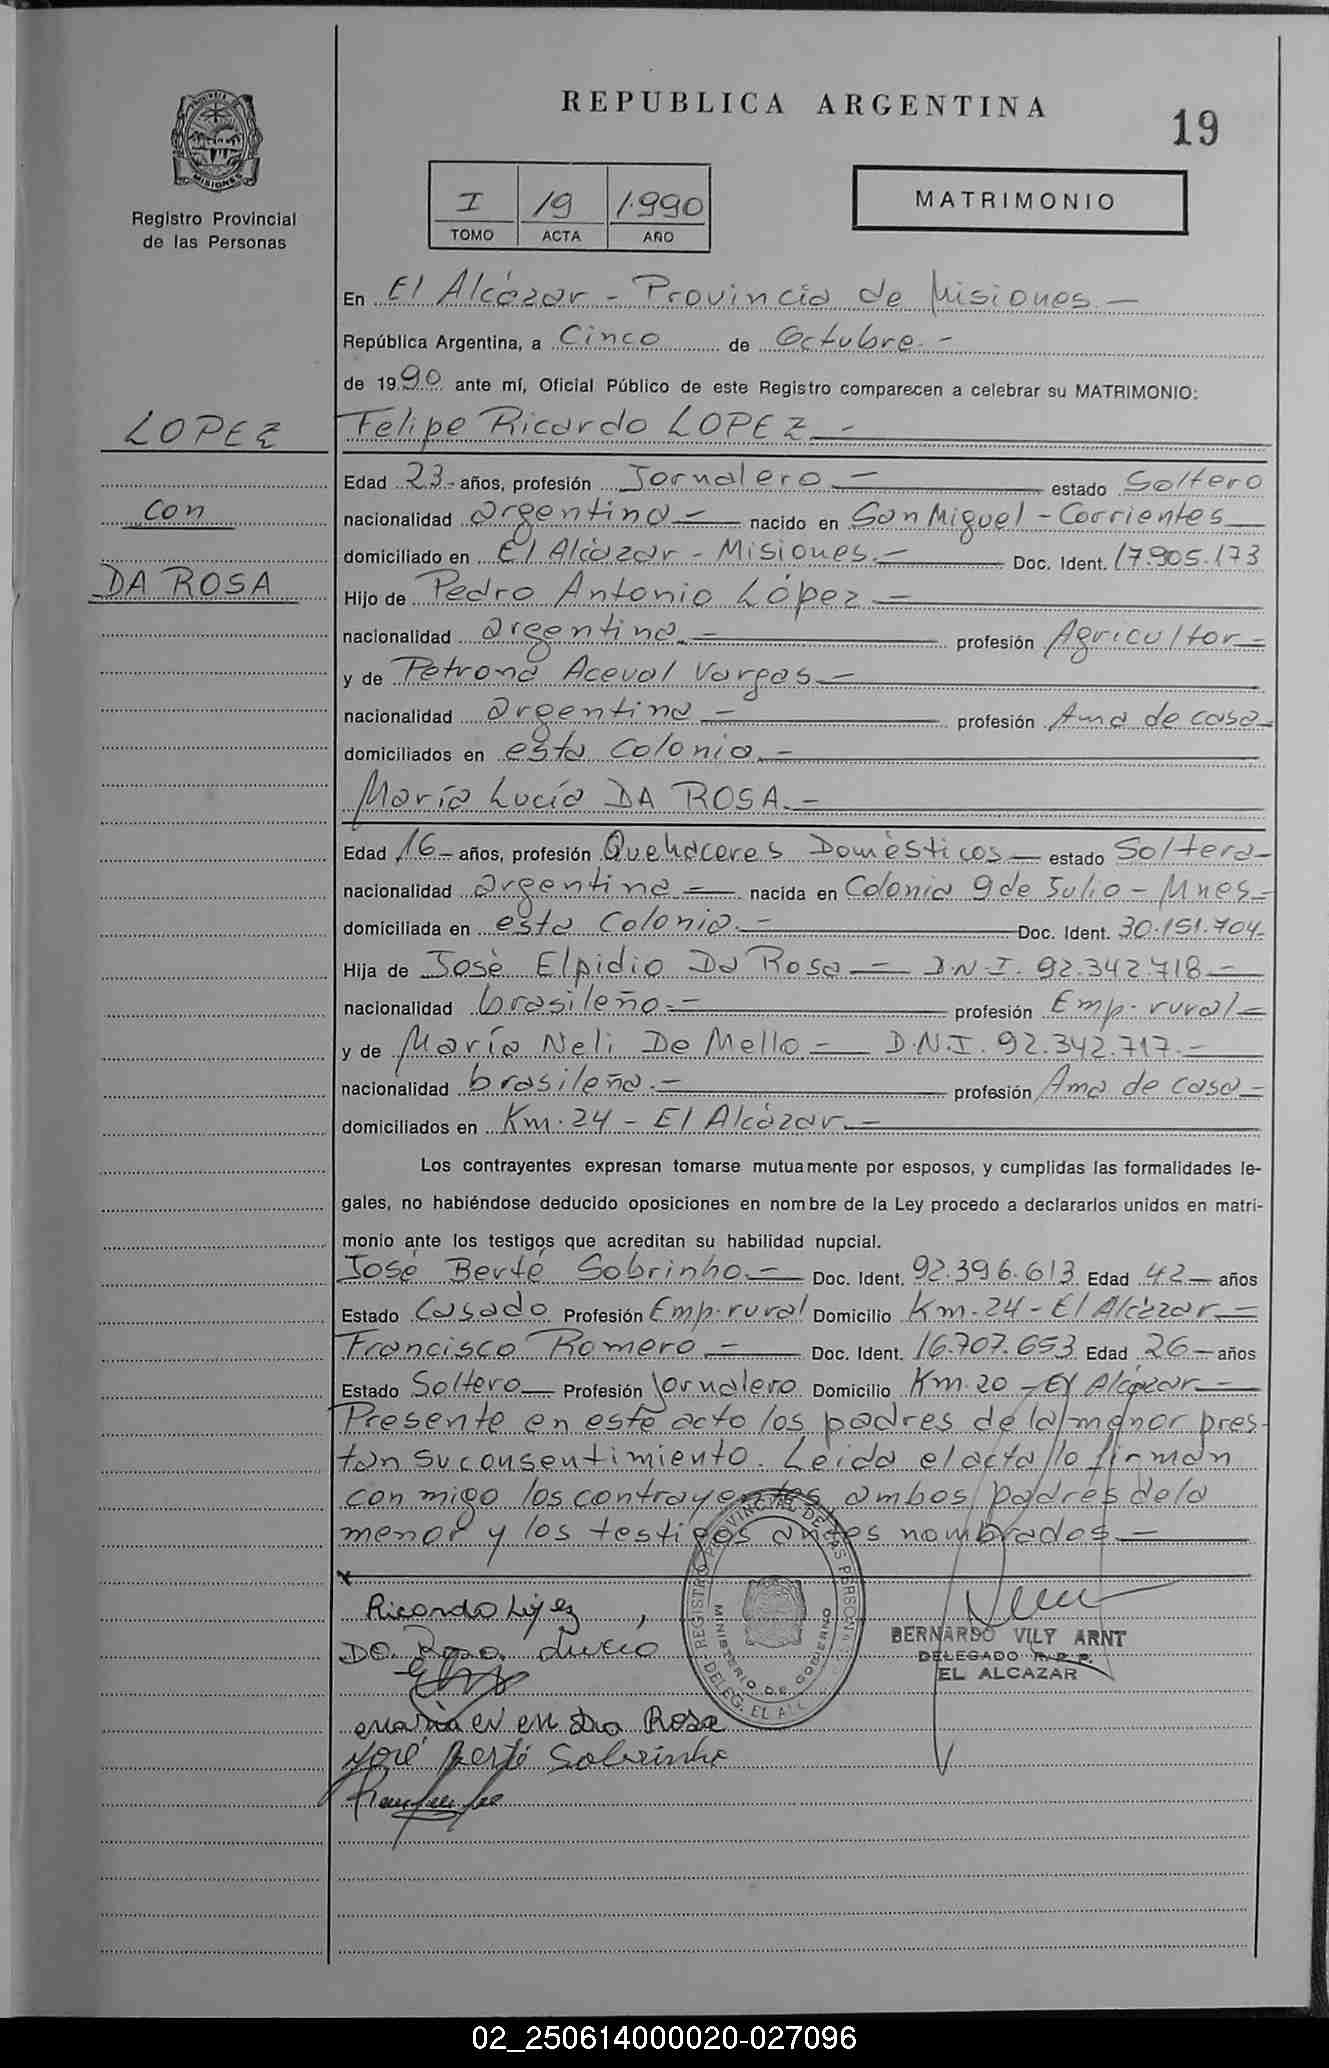 REPUBLICA ARGENTINA
19
PROVINCIA DE
MISIONES
Registro Provincial
de las Personas
I 19 1.990
TOMO ACTA AÑO
MATRIMONIO
En El Alcázar - Provincia de Misiones. -
República Argentina, a Cinco de Octubre. -
de 1990 ante mí, Oficial Público de este Registro comparecen a celebrar su MATRIMONIO:
LOPEZ
con
DA ROSA
Felipe Ricardo LOPEZ. -
Edad 23.- años, profesión Jornalero - estado Soltero
nacionalidad argentina - nacido en San Miguel - Corrientes
domiciliado en El Alcázar - Misiones. - Doc. Ident. 17.905.173
Hijo de Pedro Antonio López -
nacionalidad argentina. - profesión Agricultor -
y de Petrona Aceval Vargas. -
nacionalidad argentina - profesión Ama de casa -
domiciliados en esta Colonia. -
María Lucía DA ROSA. -
Edad 16 - años, profesión Quehaceres Domésticos - estado Soltera -
nacionalidad argentina - nacida en Colonia 9 de Julio - Mnes -
domiciliada en esta Colonia. - Doc. Ident. 30.151.704-
Hija de José Elpidio Da Rosa - D.N.I. 92.342.718 -
nacionalidad brasileño. - profesión Emp. rural -
y de María Neli De Mello - D.N.I. 92.342.717. -
nacionalidad brasileña. - profesión Ama de casa -
domiciliados en Km. 24 - El Alcázar. -
Los contrayentes expresan tomarse mutuamente por esposos, y cumplidas las formalidades le-
gales, no habiéndose deducido oposiciones en nombre de la Ley procedo a declararlos unidos en matri-
monio ante los testigos que acreditan su habilidad nupcial.
José Berté Sobrinho. - Doc. Ident. 92.396.613 Edad 42 - años
Estado Casado Profesión Emp. rural Domicilio Km. 24 - El Alcázar -
Francisco Romero - Doc. Ident. 16.707.653 Edad 26 - años
Estado Soltero - Profesión Jornalero Domicilio Km. 20 - El Alcázar -
Presente en este acto los padres de la menor pres-
tan su consentimiento. Leida el acta lo firman
conmigo los contrayentes ambos padres de la
menor y los testigos antes nombrados. -
Ricardo López,
Da Rosa Lucia
Rosa
José Berté Sobrinho
REGISTRO PROVINCIAL DE LAS PERSONAS
MINISTERIO DE GOBIERNO
DELEG. EL ALC
BERNARDO VILY ARNT
DELEGADO R. P. P.
EL ALCAZAR
02_250614000020-027096